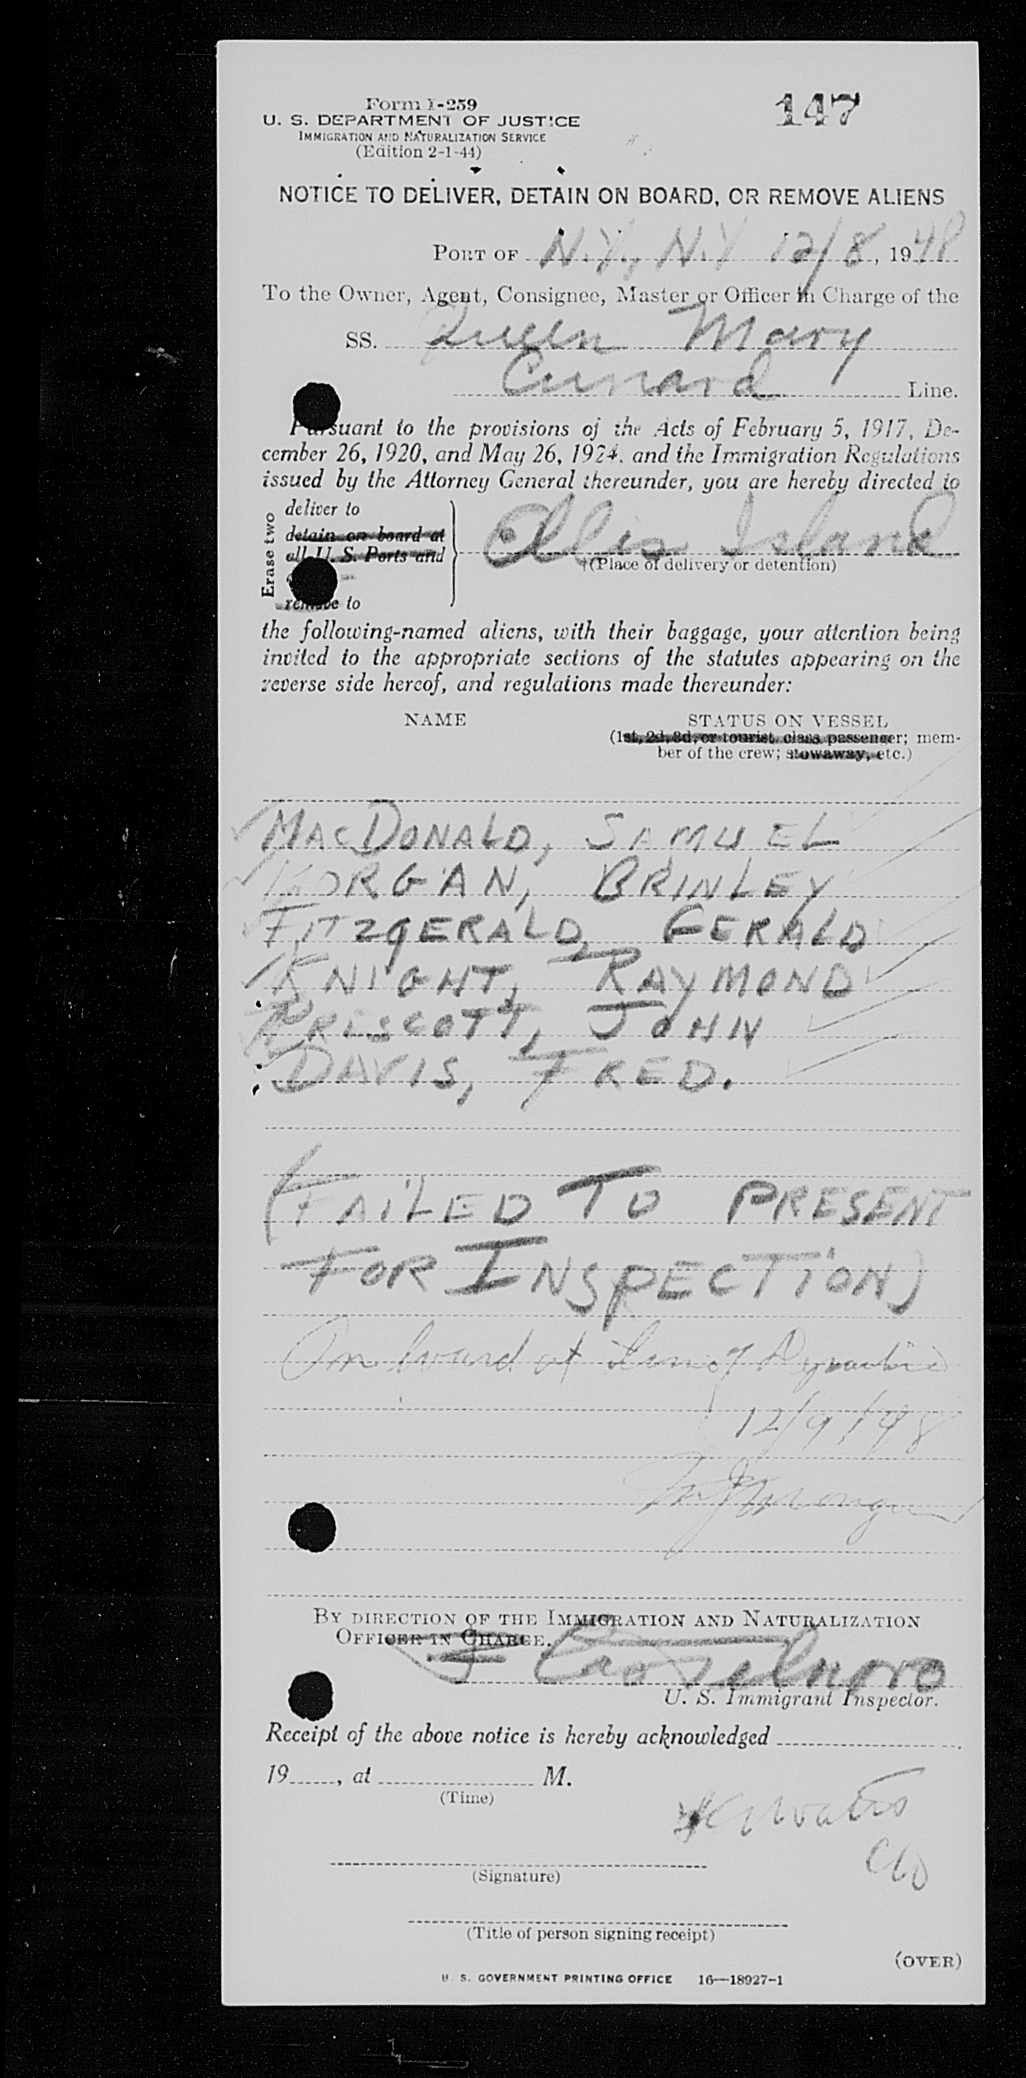 Form I-259
147
U. S. DEPARTMENT OF JUSTICE
IMMIGRATION AND NATURALIZATION SERVICE
(Edition 2-1-44)
NOTICE TO DELIVER, DETAIN ON BOARD, OR REMOVE ALIENS
PORT OF N.Y., N.Y 12/8, 1948
To the Owner, Agent, Consignee, Master or Officer in Charge of the
SS. Queen Mary
Cunard Line.
Pursuant to the provisions of the Acts of February 5, 1917, De-
cember 26, 1920, and May 26, 1924, and the Immigration Regulations
issued by the Attorney General thereunder, you are hereby directed to
Erase two
deliver to
detain on board at
all U. S. Ports and
remove to
Ellis Island
(Place of delivery or detention)
the following-named aliens, with their baggage, your attention being
invited to the appropriate sections of the statutes appearing on the
reverse side hereof, and regulations made thereunder:
NAME STATUS ON VESSEL
(1st, 2d, 3d, or tourist class passenger; mem-
ber of the crew; stowaway, etc.)
MACDONALD, SAMUEL
MORGAN, BRINLEY
FITZGERALD, GERALD
KNIGHT, RAYMOND
PRISCOTT, JOHN
DAVIS, FRED.
(FAILED TO PRESENT
FOR INSPECTION)
On board at time of
12/9/48
BY DIRECTION OF THE IMMIGRATION AND NATURALIZATION
OFFICER IN CHARGE.
U. S. Immigrant Inspector.
Receipt of the above notice is hereby acknowledged
19, at M.
(Time)
(Signature)
(Title of person signing receipt)
(OVER)
U. S. GOVERNMENT PRINTING OFFICE 16—18927-1